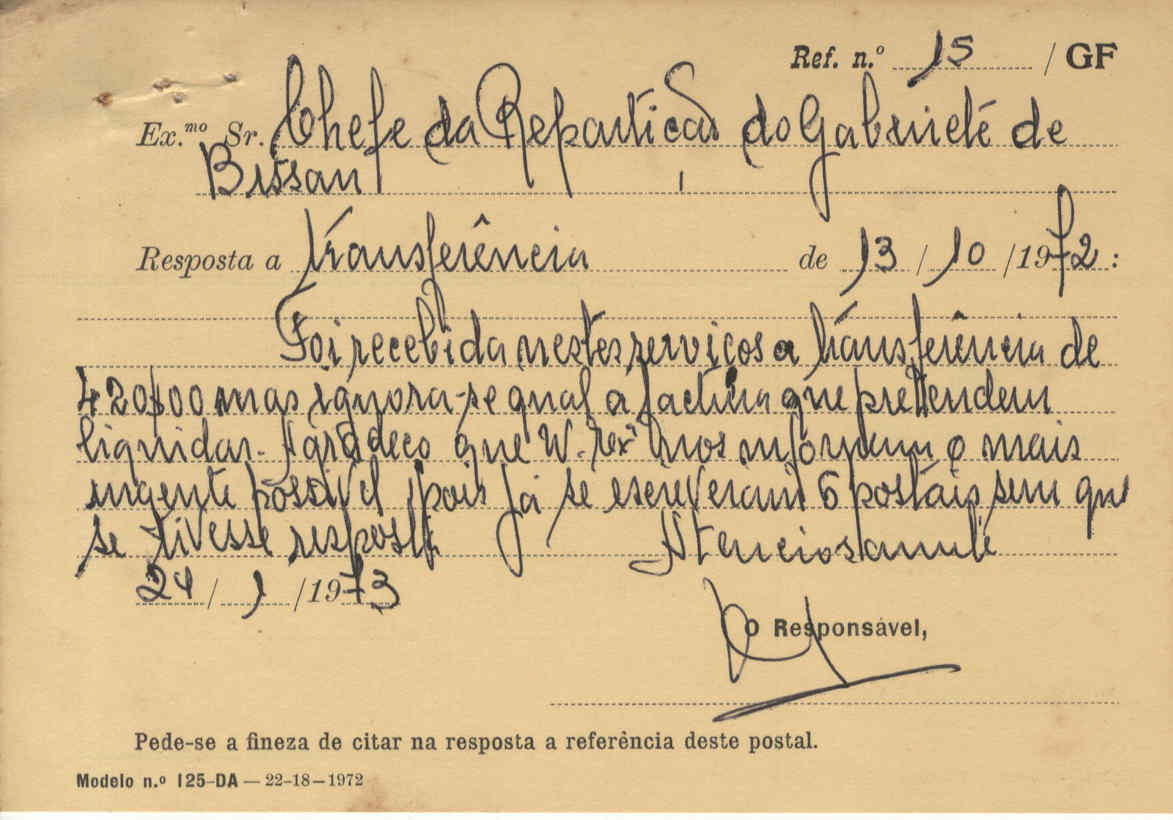 Ref. n.º 15 / GF
Ex.mo Sr. Chefe da Repartição do Gabinete de
Bissau
Resposta a transferência de 13 / 10 / 1972 :
Foi recebida nestes serviços a transferência de
420$00 mas ignora-se qual a factura que pretendem
liquidar. Agradeço que V. Exª nos informem o mais
urgente possível pois já se escreveram 6 postais sem que
se tivesse resposta
Atenciosamente
24 / 1 / 1973
O Responsável,
Pede-se a fineza de citar na resposta a referência deste postal.
Modelo n.º 125-DA — 22-18-1972